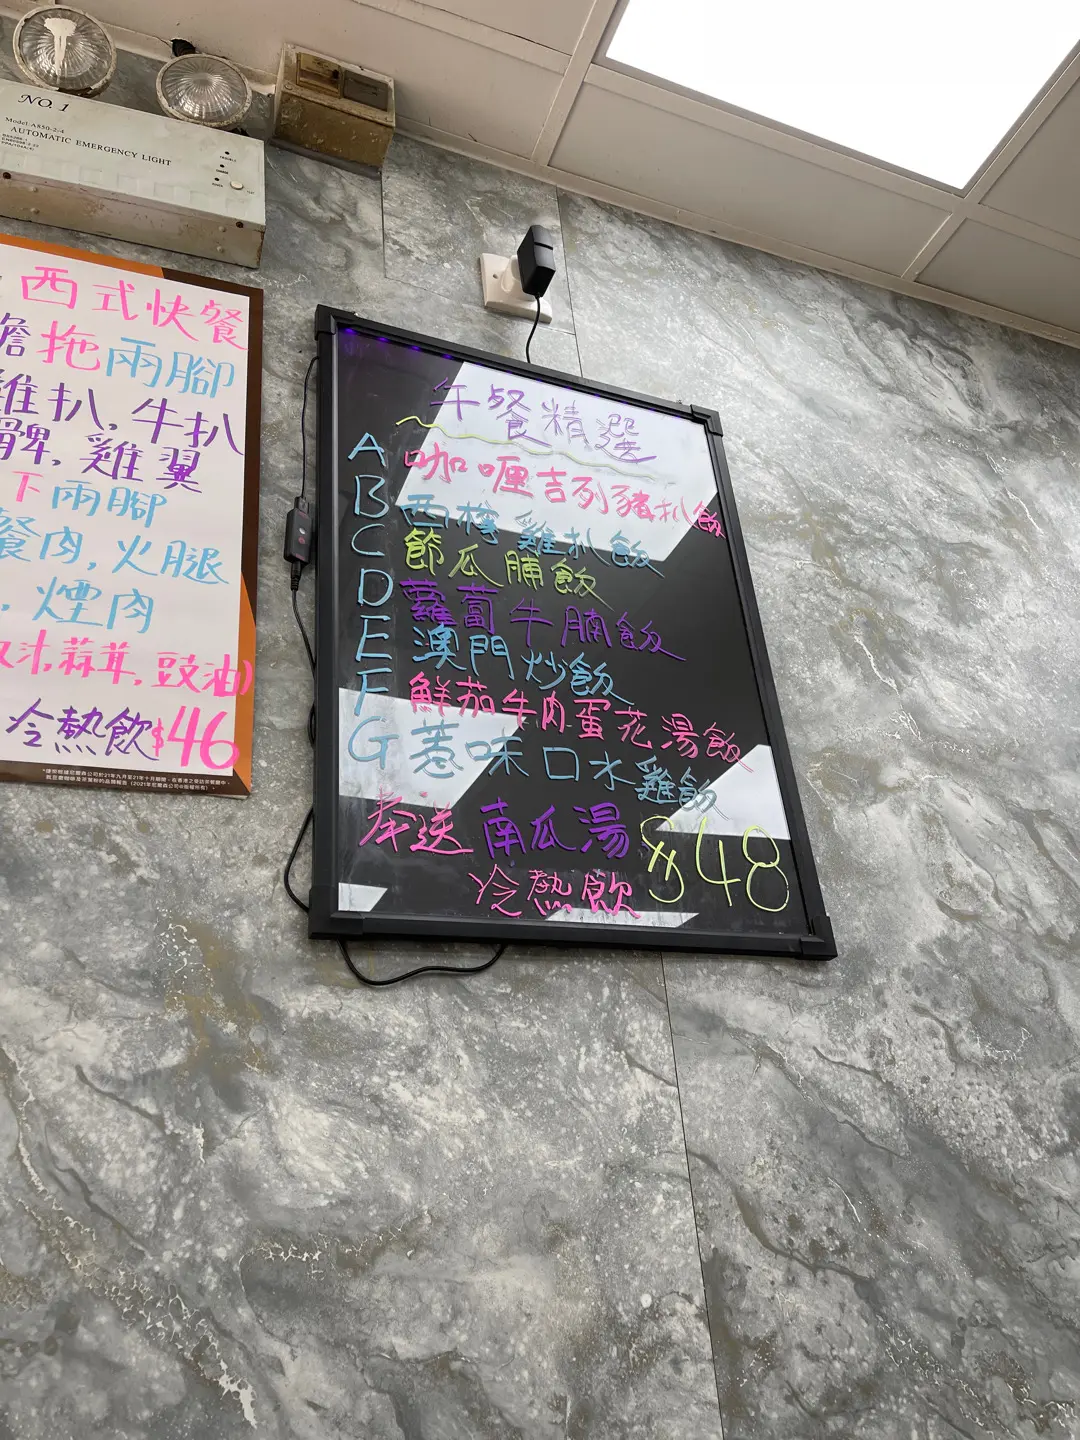 NO. 1
Model:A850-2-4
AUTOMATIC EMERGENCY LIGHT
西式快餐
拖兩腳
雞扒,牛扒
髀,雞翼
下兩腳
餐肉,火腿
,煙肉
汁,蒜茸,豉油)
冷熱飲$46
午餐精選
A 咖喱吉列豬扒飯
B 西檸雞扒飯
C 節瓜脯飯
D 蘿蔔牛腩飯
E 澳門炒飯
F 鮮茄牛肉蛋花湯飯
G 惹味口水雞飯
奉送南瓜湯
冷熱飲 $48